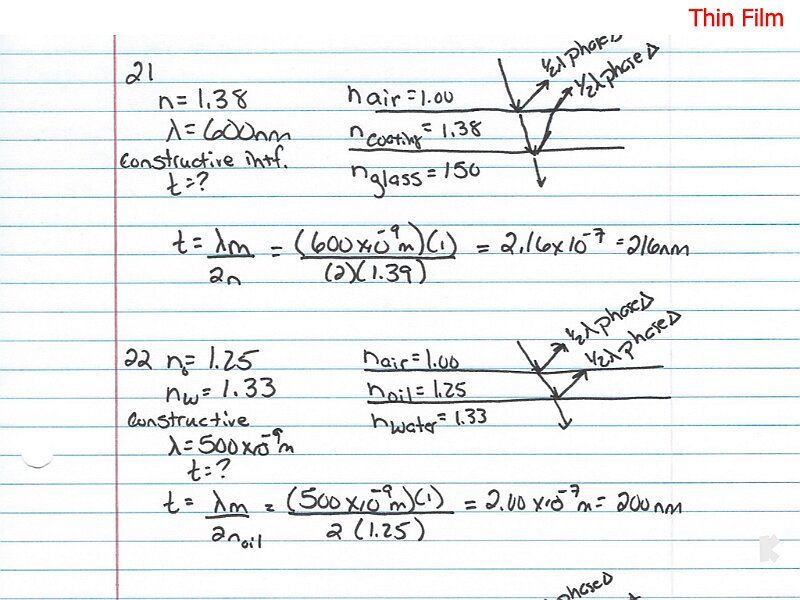 Thin Film
21
n = 1.38
λ = 600nm
constructive intf.
t = ?
n air = 1.00
n coating = 1.38
n glass = 150
½λ phase Δ
½λ phase Δ
t = λm / 2n = (600x10⁻⁹m)(1) / (2)(1.39) = 2.16x10⁻⁷ = 216nm
22 n₀ = 1.25
n w = 1.33
constructive
λ = 500x10⁻⁹m
t = ?
n air = 1.00
n oil = 1.25
n water = 1.33
½λ phase Δ
½λ phase Δ
t = λm / 2n oil = (500x10⁻⁹m)(1) / 2(1.25) = 2.00x10⁻⁷m = 200nm
phase Δ